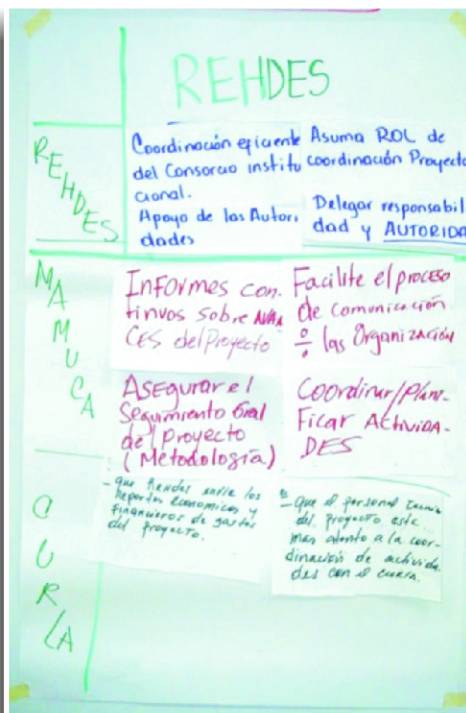 REHDES
REHDES
Coordinación eficiente
del Consorcio institu
cional.
Apoyo de las Autori
dades
Asuma ROL de
coordinación Proyecto
Delegar responsabil
dad y AUTORIDA
MAMUCA
Informes con-
tinuos sobre AVAN
CES del Proyecto
Facilite el proceso
de comunicación
÷ las Organización
Asegurar el
Seguimiento Gral
del Proyecto
(Metodología)
Coordinar/Plani-
ficar Activida-
DES
CURLA
- que Rehdes envie los
Reportes economicos y
financieros de gastos
del proyecto.
- que el personal tecnic
del proyecto este
mas atento a la coor-
dinación de activida
des con el curla.